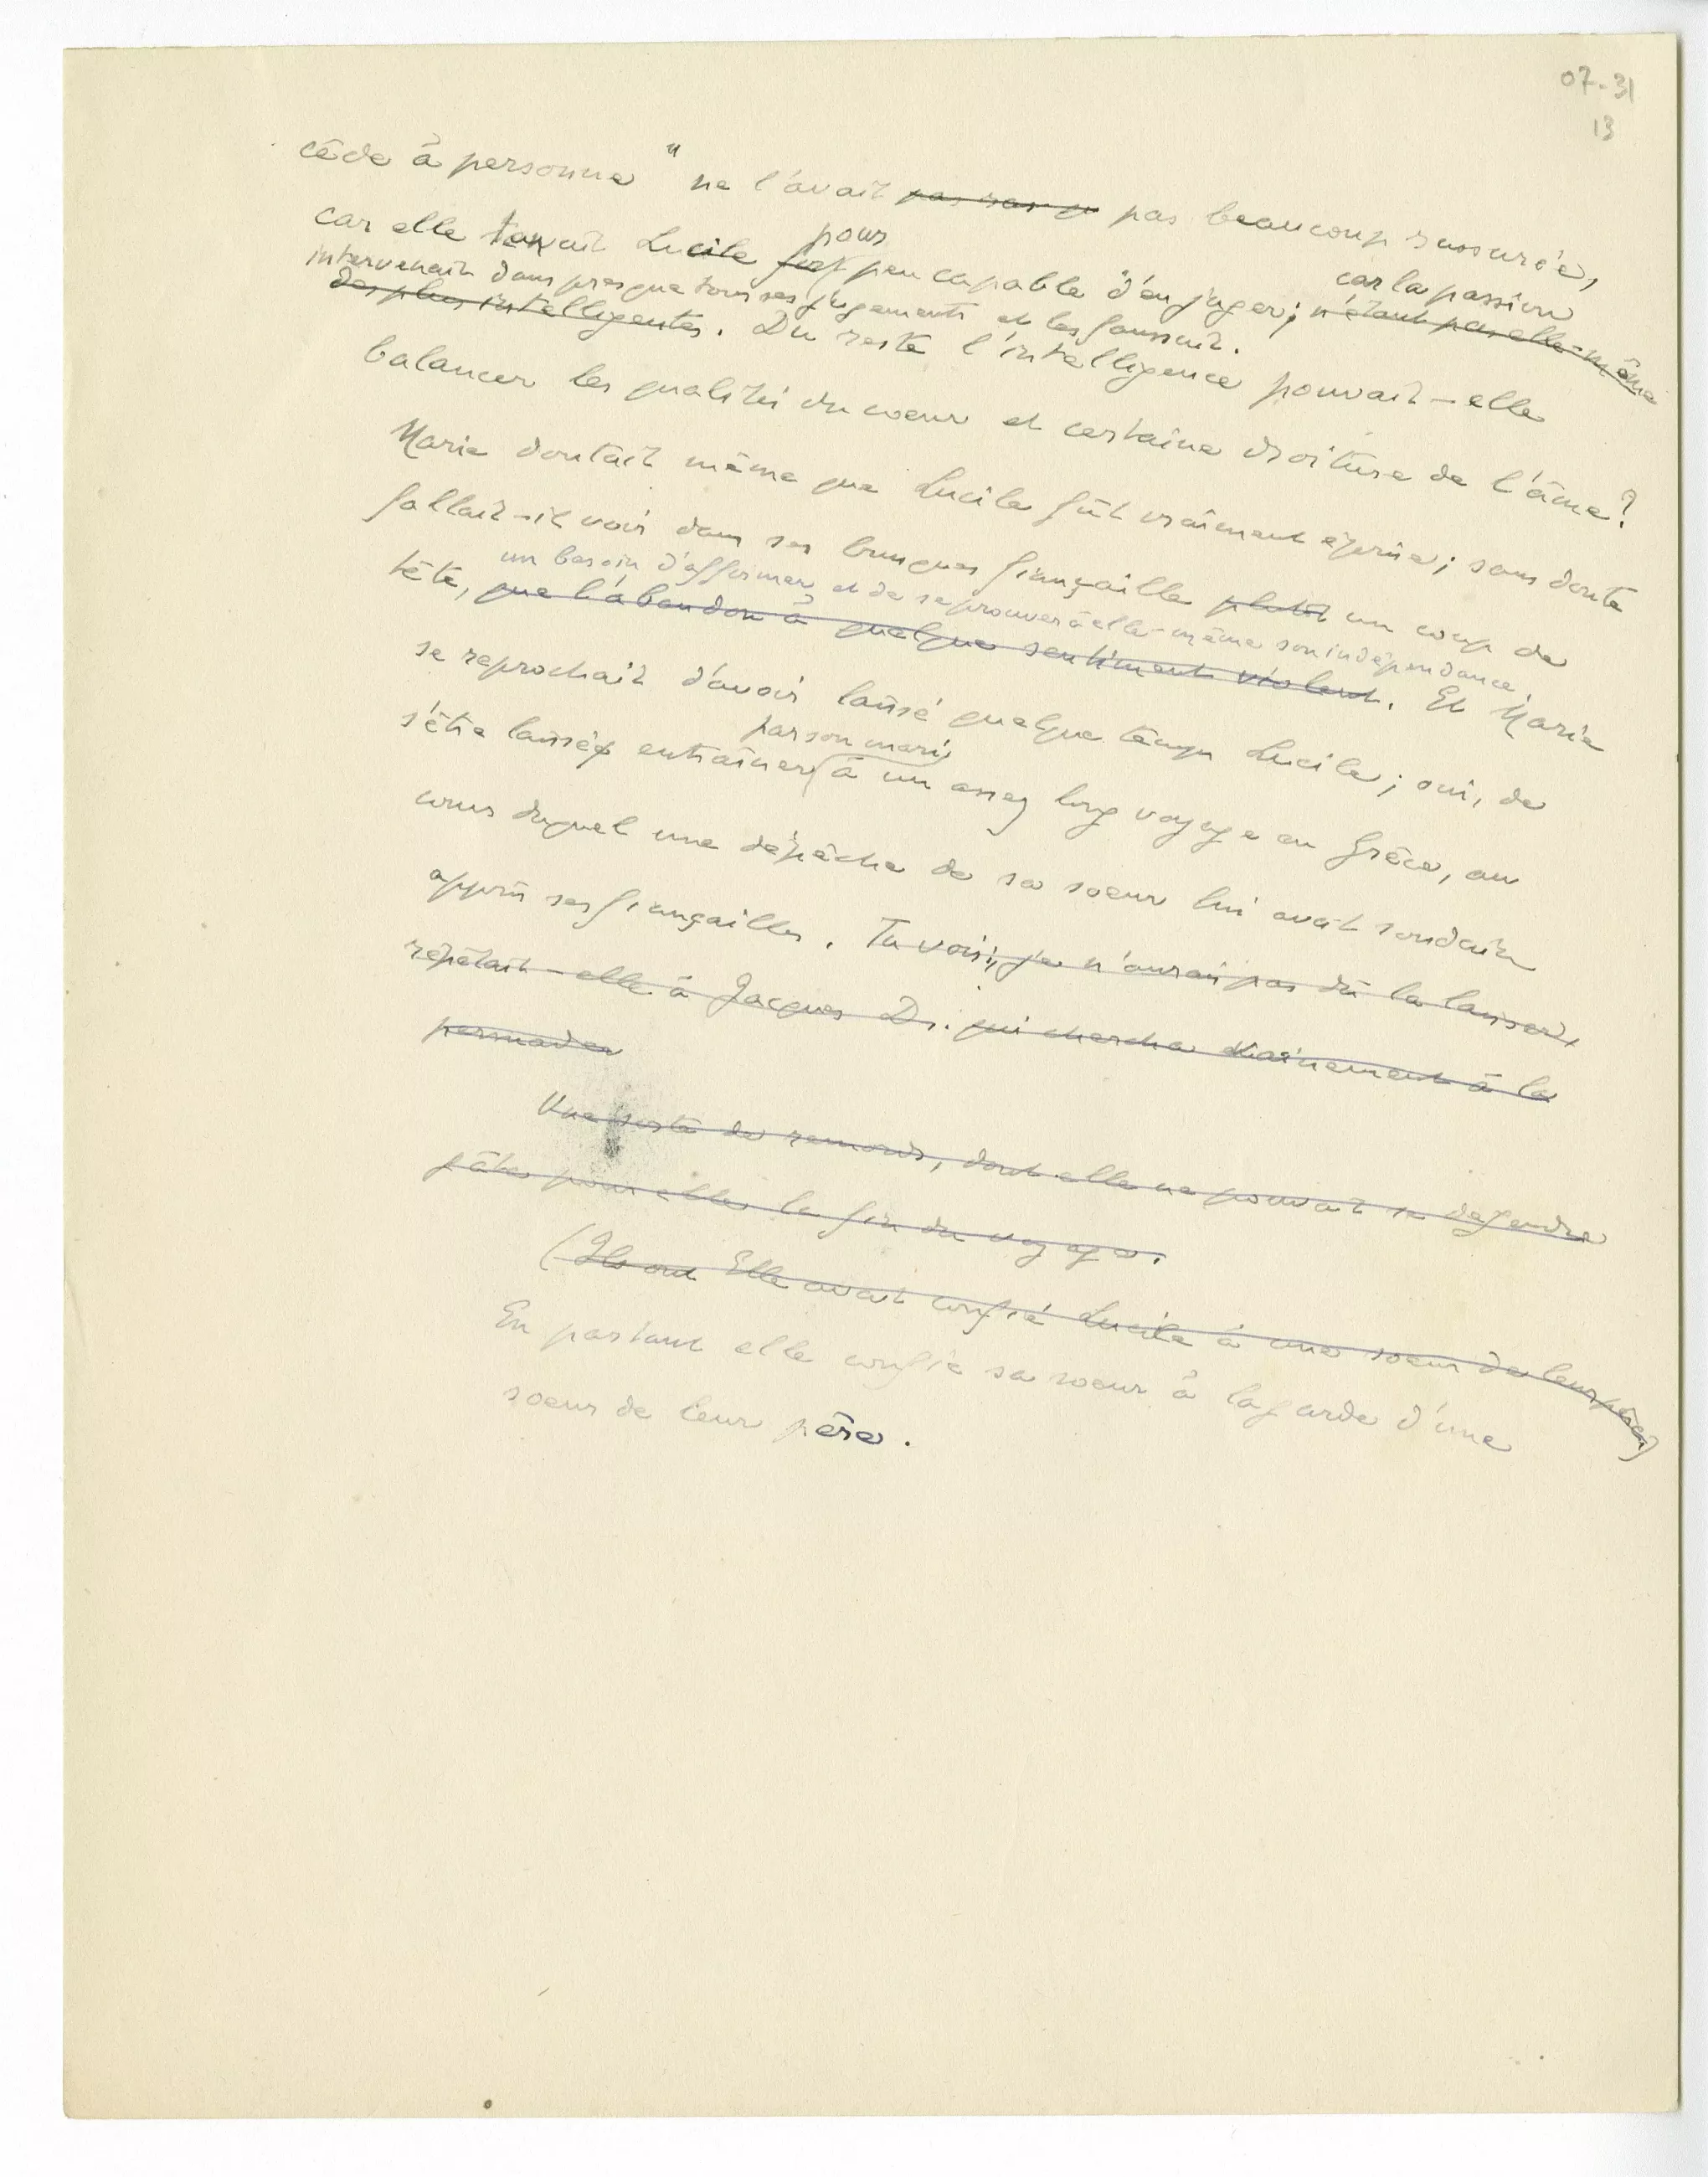 07-31
13
cède à personne" ne l'avait pas beaucoup rassurée,
pour
car elle tenait Lucile fort peu capable d'en juger; n'étant pas elle-même
car la passion
intervenait dans presque tous ses jugements et les faussait.
des plus intelligentes. Du reste l'intelligence pouvait-elle
balancer les qualités du coeur et certaine droiture de l'âme?
Marie doutait même que Lucile fût vraiment éprise; sans doute
fallait-il voir dans ses brusques fiançailles plutôt un coup de
un besoin d'affirmer et de se prouver à elle-même son indépendance.
tête, que l'abandon à quelque sentiment violent. Et Marie
se reprochait d'avoir laissé quelque temps Lucile; oui, de
par son mari
s'être laissée entraîner à un assez long voyage en Grèce, au
cours duquel une dépêche de sa soeur lui avait soudain
appris ses fiançailles. Tu vois, je n'aurais pas dû la laisser,
répétait-elle à Jacques D. qui chercha vainement à la
persuader
Une sorte de remords, dont elle ne pouvait se défendre
gâta pour elle la fin du voyage.
(Ils ont Elle avait confié Lucile à une soeur de leur père)
En partant elle confie sa soeur à la garde d'une
soeur de leur père.